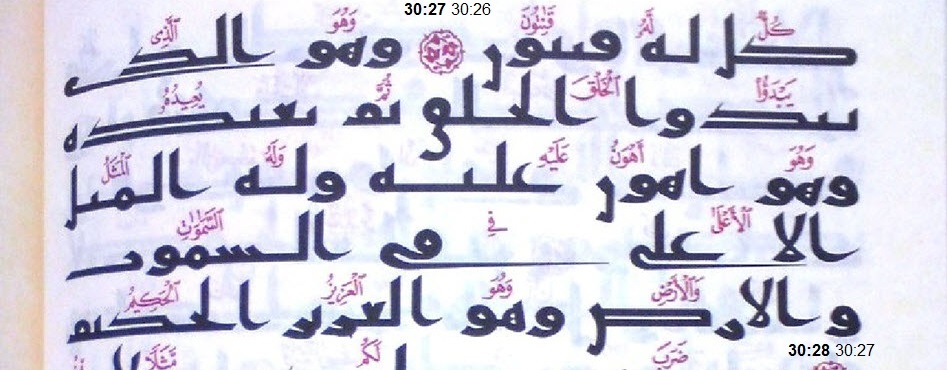 30:27 30:26
كُلٌّ لَّهُ قَٰنِتُونَ وَهُوَ ٱلَّذِى
كل له ڡںٮوں وهو الدى
يَبْدَؤُا۟ ٱلْخَلْقَ ثُمَّ يُعِيدُهُۥ
ٮٮدوا الحلٯ ٮم ٮعٮده
وَهُوَ أَهْوَنُ عَلَيْهِ وَلَهُ ٱلْمَثَلُ
وهو اهوں علٮه وله المٮل
ٱلْأَعْلَىٰ فِى ٱلسَّمَٰوَٰتِ
الاعلى ڡى السموٮ
وَٱلْأَرْضِ وَهُوَ ٱلْعَزِيزُ ٱلْحَكِيمُ
والارص وهو العرٮر الحكٮم
30:28 30:27
ضَرَبَ لَكُم مَّثَلًا